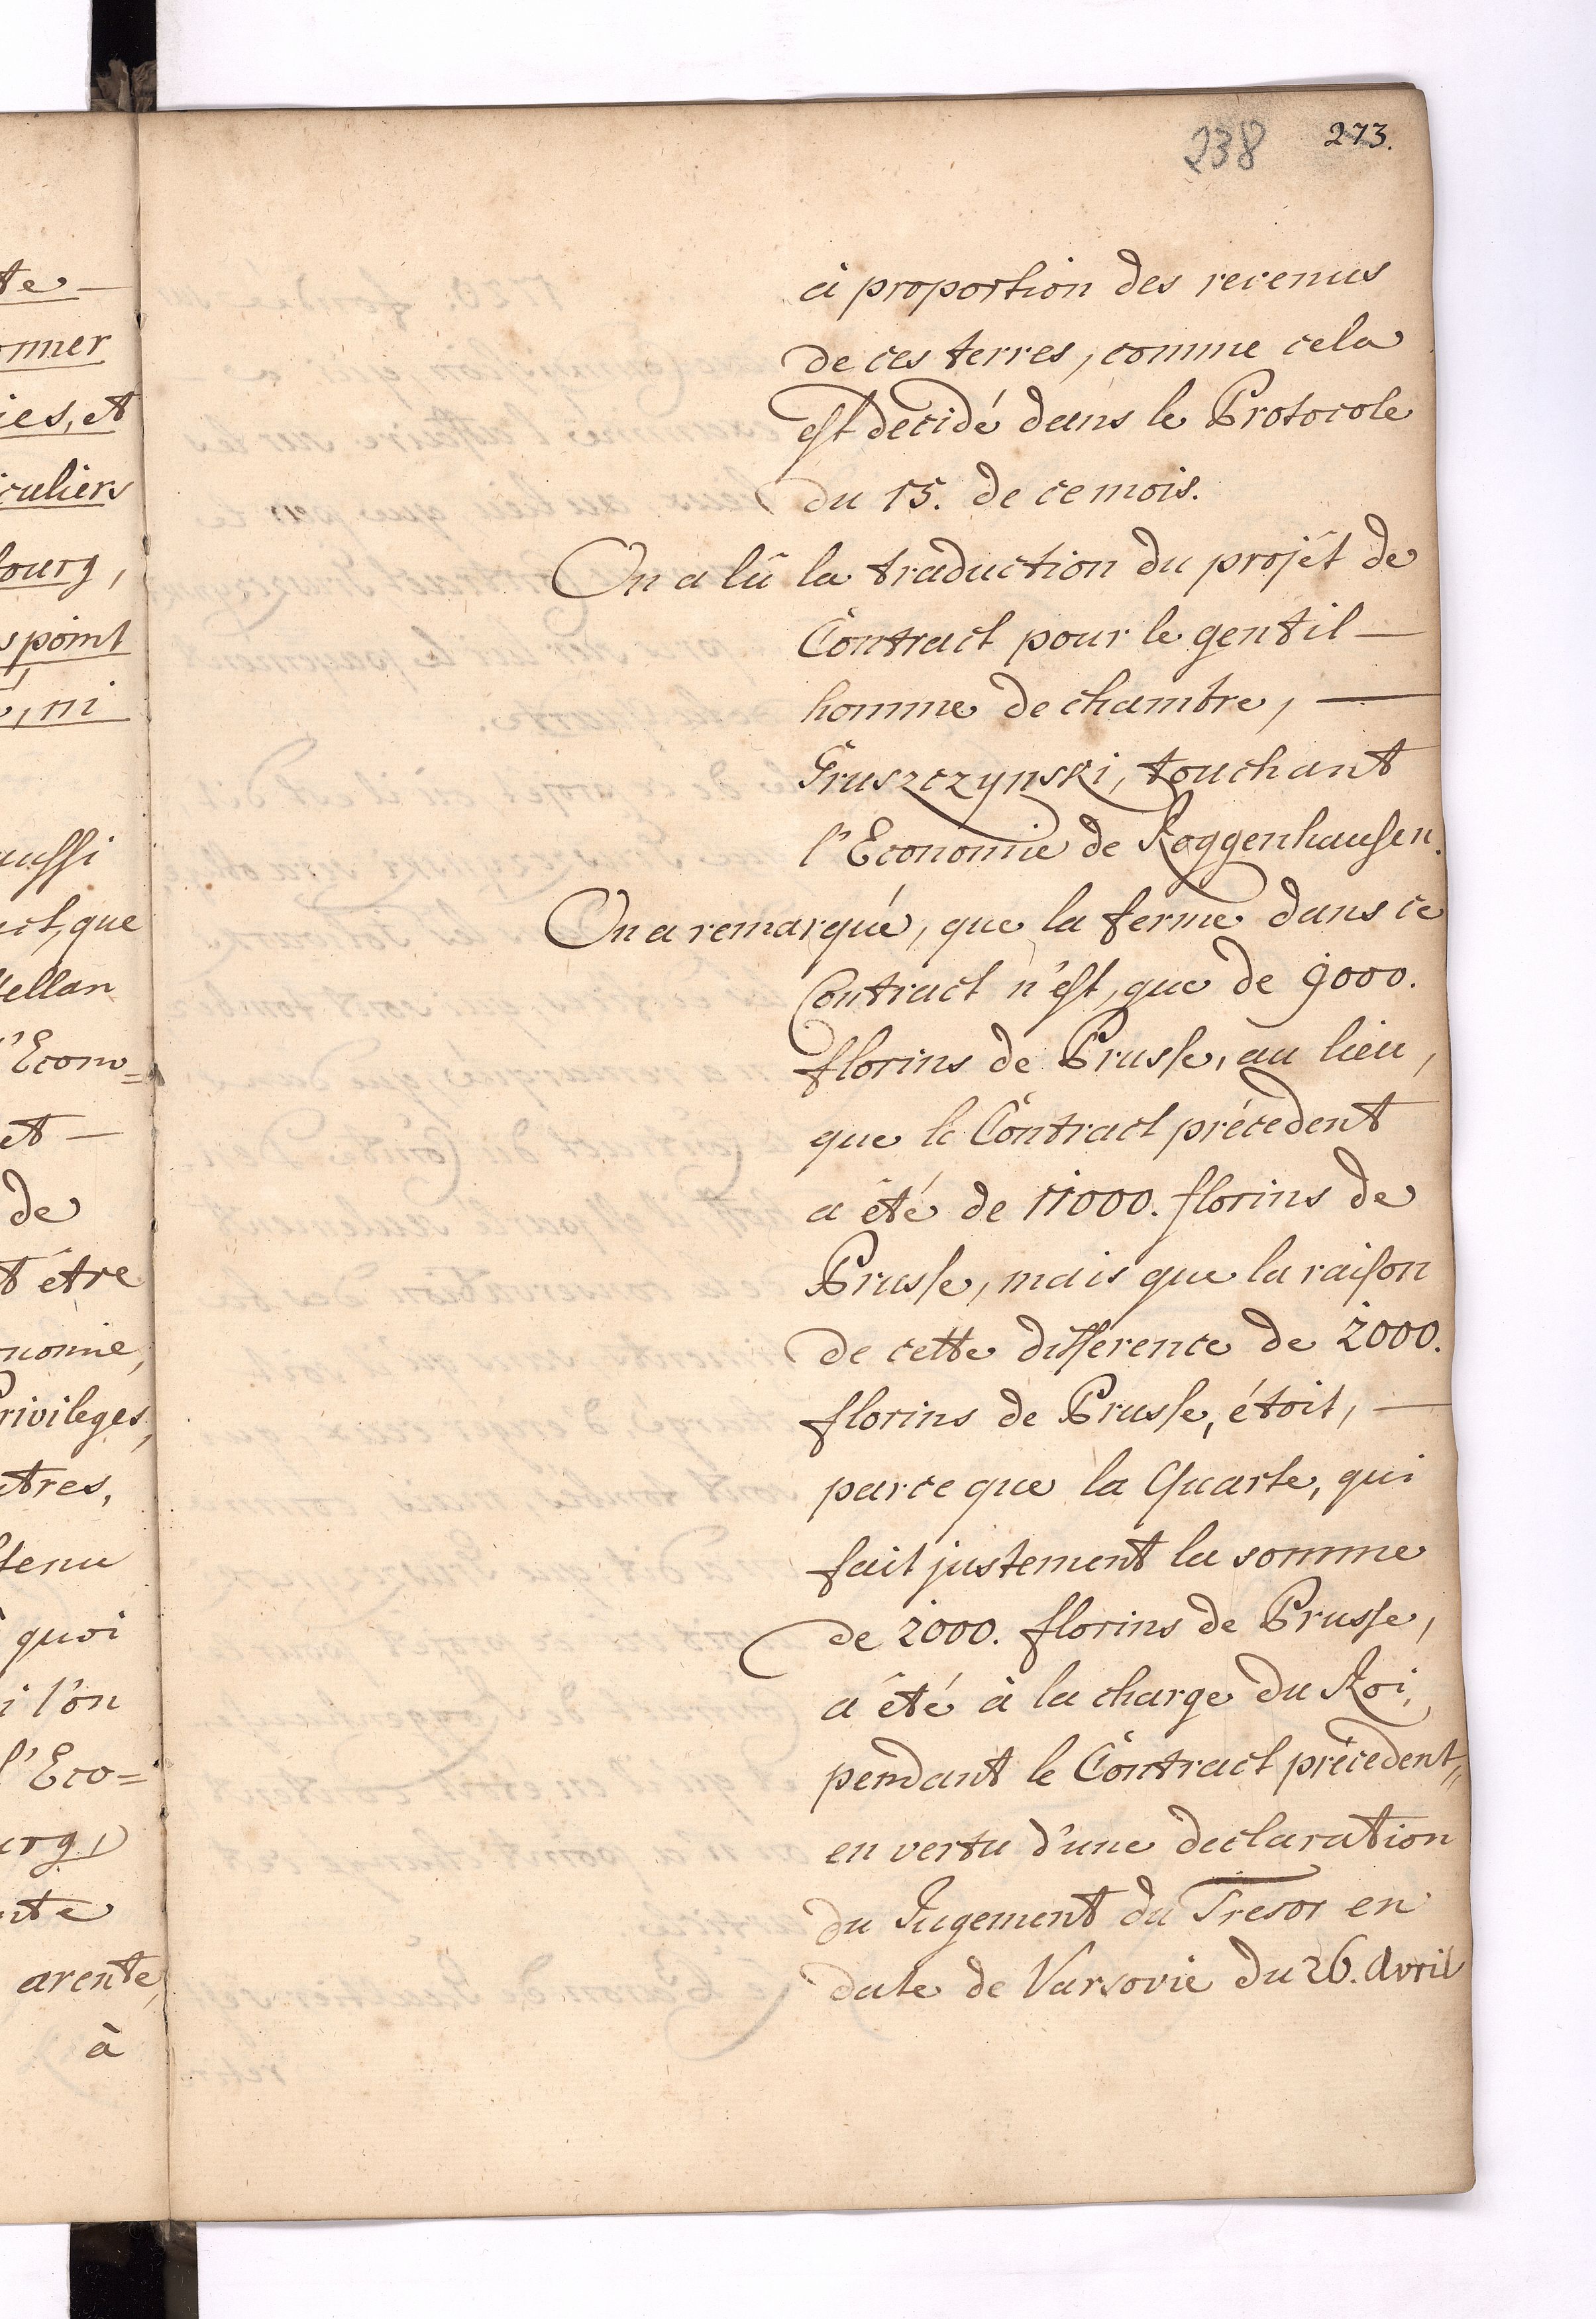 te —
onner
ies, et
culiers
bourg,
s point
, ni
aussi
ct, que
tellan
l'Econo=
et —
de
t être
nomie,
Privileges,
tres,
tenu
quoi
i l'on
l'Eco=
urg,
nte
arente,
à
238 273.
à proportion des revenus
de ces terres, comme cela
est decidé dans le Protocole
du 15. de ce mois.
On a lû la traduction du projêt de
Contract pour le gentil —
homme de chambre, —
Gruszczynski, touchant
l'Economie de Roggenhausen.
On a remarqué, que la ferme dans ce
Contract n'est, que de 9000.
florins de Prusse, au lieu,
que le Contract précedent
a été de 11000. florins de
Prusse, mais que la raison
de cette difference de 2000.
florins de Prusse, étoit, —
parce que la Quarte, qui
fait justement la somme
de 2000. florins de Prusse,
a été à la charge du Roi,
pendant le Contract précedent,
en vertu d'une declaration
du Jugement du Tresor en
date de Varsovie du 26. Avril